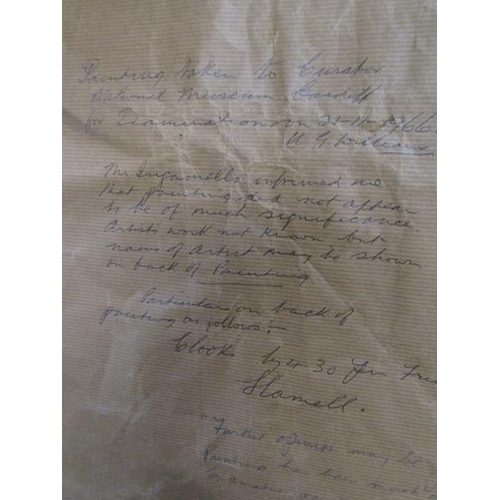 Painting taken to Curator
National Museum Cardiff
for Examination on 21-11-1966.
W G Williams
Mr Ingamells informed me
that painting did not appear
to be of much significance.
Artists work not known but
name of artist may be shown
on back of Painting
Particulars on back of
painting as follows:-
by 4-30
"Further may be
Painting has been